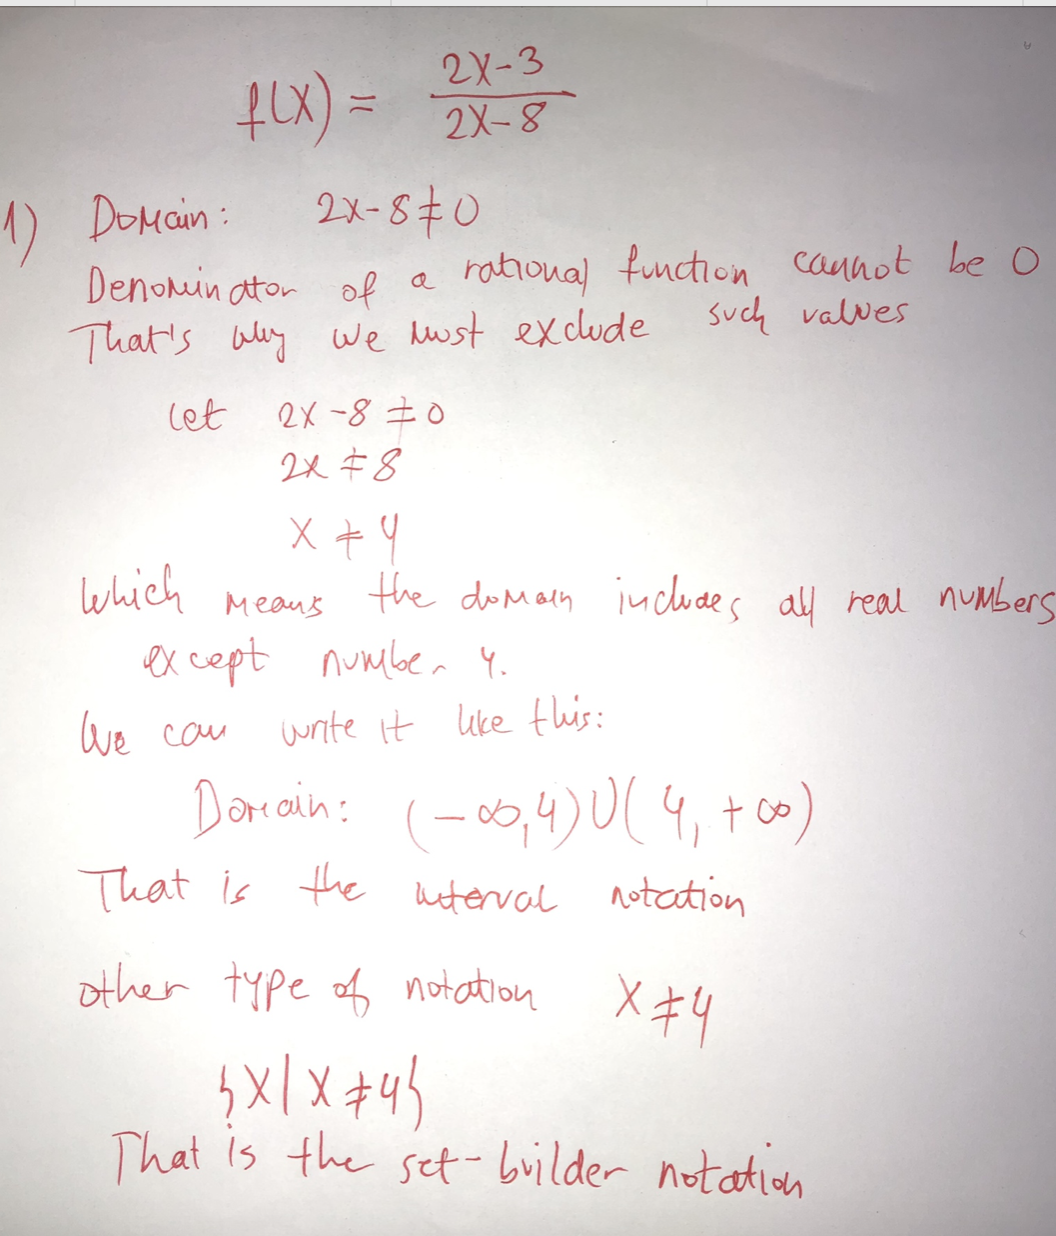 f(x) = 2x-3 / 2x-8
1) Domain: 2x-8≠0
Denominator of a rational function cannot be 0
That's why we must exclude such values
let 2x-8≠0
2x≠8
x≠4
Which means the domain includes all real numbers
except number 4.
We can write it like this:
Domain: (-∞,4)∪(4,+∞)
That is the interval notation
other type of notation x≠4
{x|x≠4}
That is the set-builder notation